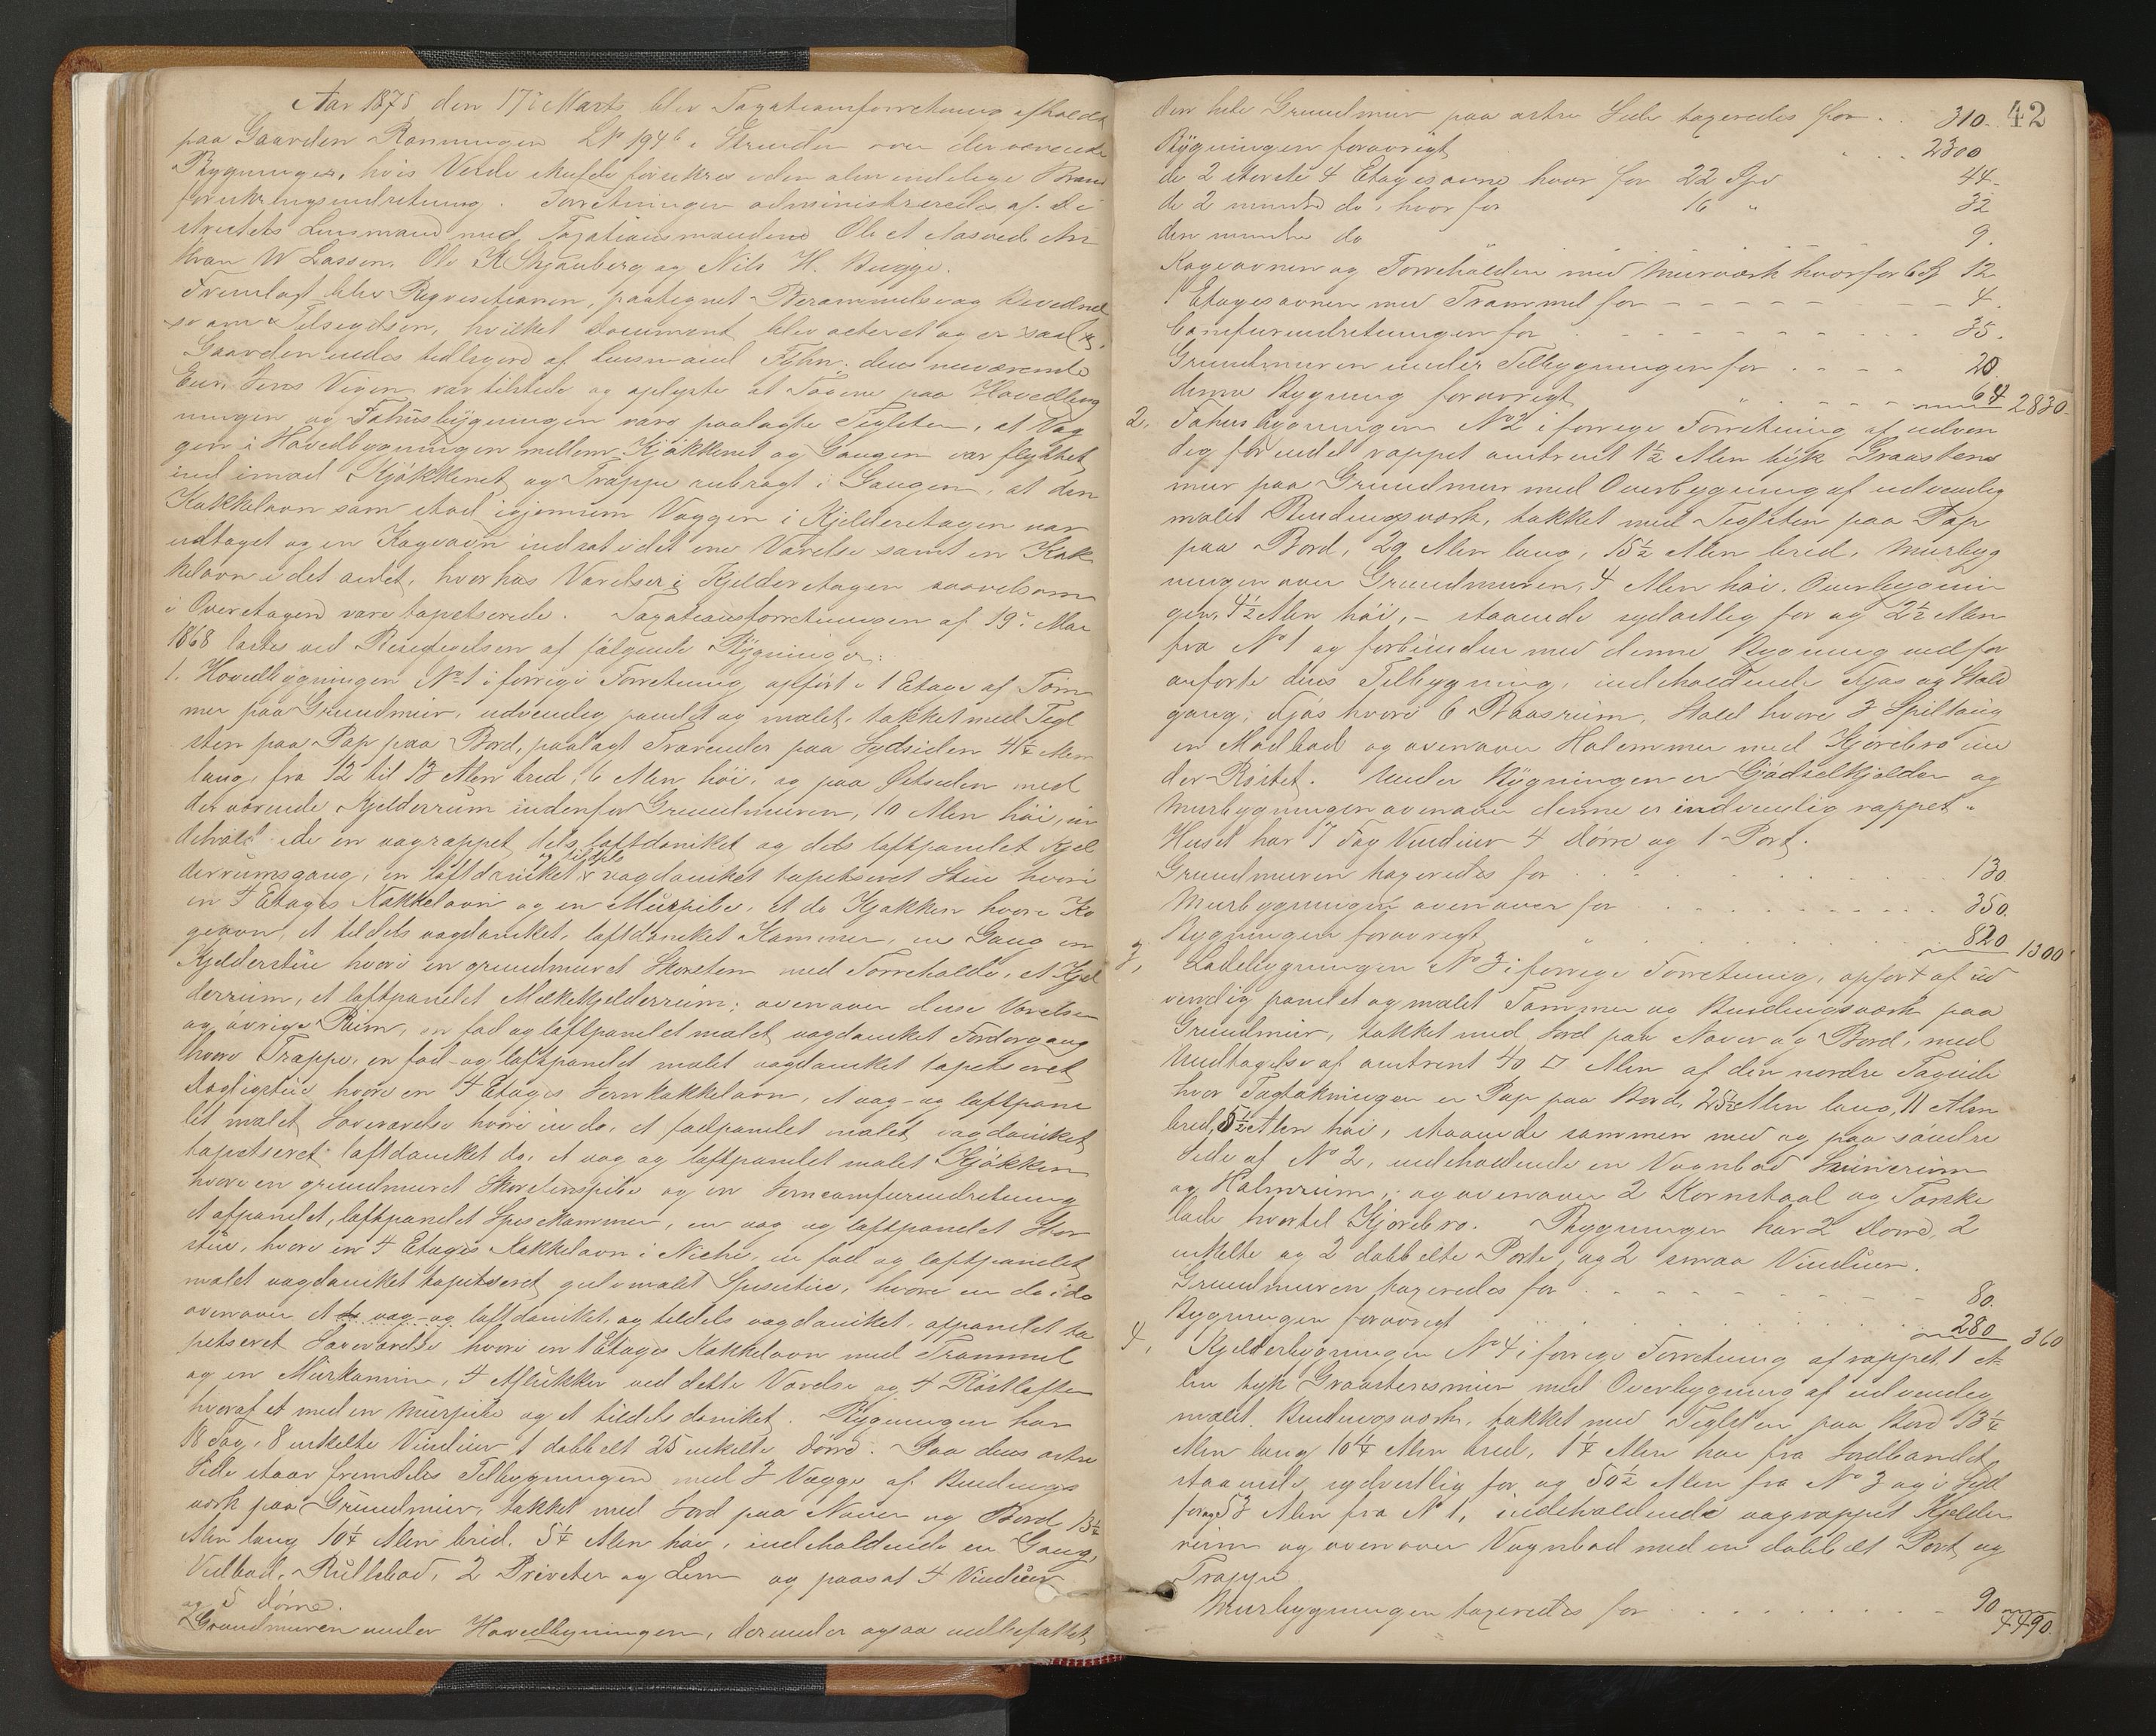 Aar 1875 den 17de Marts blev Taxationsforretning afholdt
paa Gaarden Ronningen LNo 194b i Strinden over derværende
Bygninger, hvis Værdi skulde forsikres i den almindelige Brand
forsikringsindretning. Forretningen administreredes af Di
strictets Lensmand med Taxationsmændene Ole A Aasved
W Lassen, Ole K Skjånberg og Nils H. Bugge.
Fremlagt blev Reqvisitionen, paategnet Berammelse og
som Tilsigelsen, hvilket Document blev acteret og er saal.
Gaarden eiedes tidligere af Lensmand Føhn; dens nuværende
Eier Jens Vigen var tilstede og oplyste at Tagene paa Hovedbyg
ningen og Fæhusbygningen vare paalagte Teglsten, at Væg
gen i Hovedbygningen mellem Kjøkkenet og Gangen var flyttet
ind imod Kjøkkenet og Trappe anbragt i Gangen, at den
Kakkelovn som stod igjennem Væggen i Kjelderetagen var
udtaget og en Kogeovn indsat i det ene Værelse samt en Kak
kelovn i det andet, hvorhos Værelser i Kjelderetagen saavelsom
i Overetagen vare tapetserede. Taxationsforretningen af 19de Mai
1868 læstes ved Besigtigelsen af følgende Bygninger:
1. Hovedbygningen No 1 i forrige Forretning opført i 1 Etage af Tøm
mer paa Grundmur, udvendig panelet og malet, takket med Tegl
sten paa Pap paa Bord, paalagt Travender paa Sydsiden 41½ Alen
lang, fra 12 til 13 Alen bred, 6 Alen høi, og paa Østsiden med
derværende Kjelderrum indenfor Grundmuren, 10 Alen høi, in
deholdende en vægrappet dels loftdønniket og dels loftpanelet Kjel
derrumsgang, en loftdønniket og tildels vægdønniket tapetseret Stue hvori
en 4 Etages Kakkelovn og en Murpibe, et do Kjøkken hvori Ko
geovn, et tildels vægdønniket, loftdønniket Kammer, en Gang en
Kjelderstue hvori en grundmuret Skorsten med Tørreholde, et Kjel
derrum, et loftpanelet Melkekjelderrum; ovenover disse Værelser
og øvrige Rum, en fod og loftpanelet malet vægdønniket Fordørgang
hvori Trappe, en fod- og loftpanelet malet vægdønniket tapetseret
Dagligstue hvori en 4 Etages Jernkakkelovn, et væg- og loftpane
let malet Soveværelse hvori en do, et fodpanelet malet vægdønniket
tapetseret loftdønniket do, et væg og loftpanelet malet Kjøkken
hvori en grundmuret Skorstenspibe og en Jerncomfurindretning
et afpanelet, loftpanelet Spisekammer, en væg og loftpanelet Stor
stue, hvori en 4 Etages Kakkelovn i Niche, en fod og loftpanelet
malet vægdønniket tapetseret gulvmalet Spisestue, hvori en do i do
ovenover et væg- og loftdønniket, og tildels vægdønniket, afpanelet ta
petseret Soveværelse hvori en 1 Etages Kakkelovn med Trommel
og en Murkamin, 4 Aflukker ved dette Værelse og 4 Røstlofter
hvoraf et med en Murpibe og et tildels dønniket. Bygningen har
18 Fag, 8 enkelte Vinduer 1 dobbelt 25 enkelte Dørre. Paa dens østre
Side staar fremdeles Tilbygningen med 3 Vægge af Bindings
værk paa Grundmur, takket med Jord paa Næver og Bord 13½
Alen lang 10¼ Alen bred. 5¼ Alen høi, indeholdende en Gang,
Vedbod, Rullebod, 2 Priveter og Lem og paasat 4 Vinduer
og 5 Dørre.
Grundmuren under Hovedbygningen, derunder ogsaa indbefattet
42
den hele Grundmur paa østre Side taxeredes for . . 310.
Bygningen forøvrigt " . . . 2300
de 2 største 4 Etagesovne hver for 22 Spd 44.
de 2 mindre do, hver for 16 " 32
den mindre do " 9.
Kogeovnen og Tørreholden med Murværk hver for 6 Sp 12
1 Etagesovnen med Trommel for 4.
Comfurindretningen for 35.
Grundmuren under Tilbygningen for 20
denne Bygning forøvrigt " 64 2830.
2. Fæhusbygningen No 2 i forrige Forretning af udven
dig for endel rappet omtrent 1½ Alen tyk Graastens
mur paa Grundmur med Overbygning af udvendig
malet Bindingsværk, takket med Teglsten paa Pap
paa Bord, 29 Alen lang, 15½ Alen bred, Murbyg
ningen over Grundmuren, 4 Alen høi, Overbygnin
gen, 4½ Alen høi, - staaende sydostlig for og 2½ Alen
fra No 1 og forbunden med denne Bygning ved før
anførte dens Tilbygning, indeholdende Fjøs og Stald
gang, Fjøs hvori 6 Baasrum, Stald hvori 3 Spiltoug
en Madbod og ovenover Halemmer med Kjørebro un
der Røstet. Under Bygningen er Gjødselkjelder og
Murbygningen ovenover denne er indvendig rappet.
Huset har 7 Fag Vinduer 4 Dørre og 1 Port.
Grundmuren taxeredes for 130
Murbygningen ovenover for 350.
Bygningen forøvrigt " 820 1300
3, Ladebygningen No 3 i forrige Forretning, opført af ud
vendig panelet og malet Tømmer og Bindingsværk paa
Grundmur, takket med Jord paa Næver og Bord, med
Undtagelse af omtrent 40 □ Alen af den nordre Tagside
hvor Tagtakningen er Pap paa Bord, 25½ Alen lang, 11 Alen
bred, 8½ Alen høi, staaende sammen med og paa søndre
Side af No 2, indeholdende en Vognbod
og Halmrum, og ovenover 2 Kornstaal og Tærske
lade hvortil Kjørebro. Bygningen har 2 Dørre, 2
enkelte og 2 dobbelte Porte, og 2 smaa Vinduer.
Grundmuren taxeredes for 80.
Bygningen forøvrigt 280 360
4, Kjelderbygningen No 4 i forrige Forretning af rappet 1 A
len tyk Graastensmur med Overbygning af udvendig
malet Bindingsværk, takket med Teglsten paa Bord 13¼
Alen lang 10¼ Alen bred, 1¼ Alen høi fra Jordbandet
staaende sydvestlig for og 50½ Alen fra No 3 og i Syd
for og 53 Alen fra N 1, indeholdende vægrappet Kjelder
rum og ovenover Vognbod med en dobbelt Port og
Trappe
Murbygningen taxeredes for 90
4490.